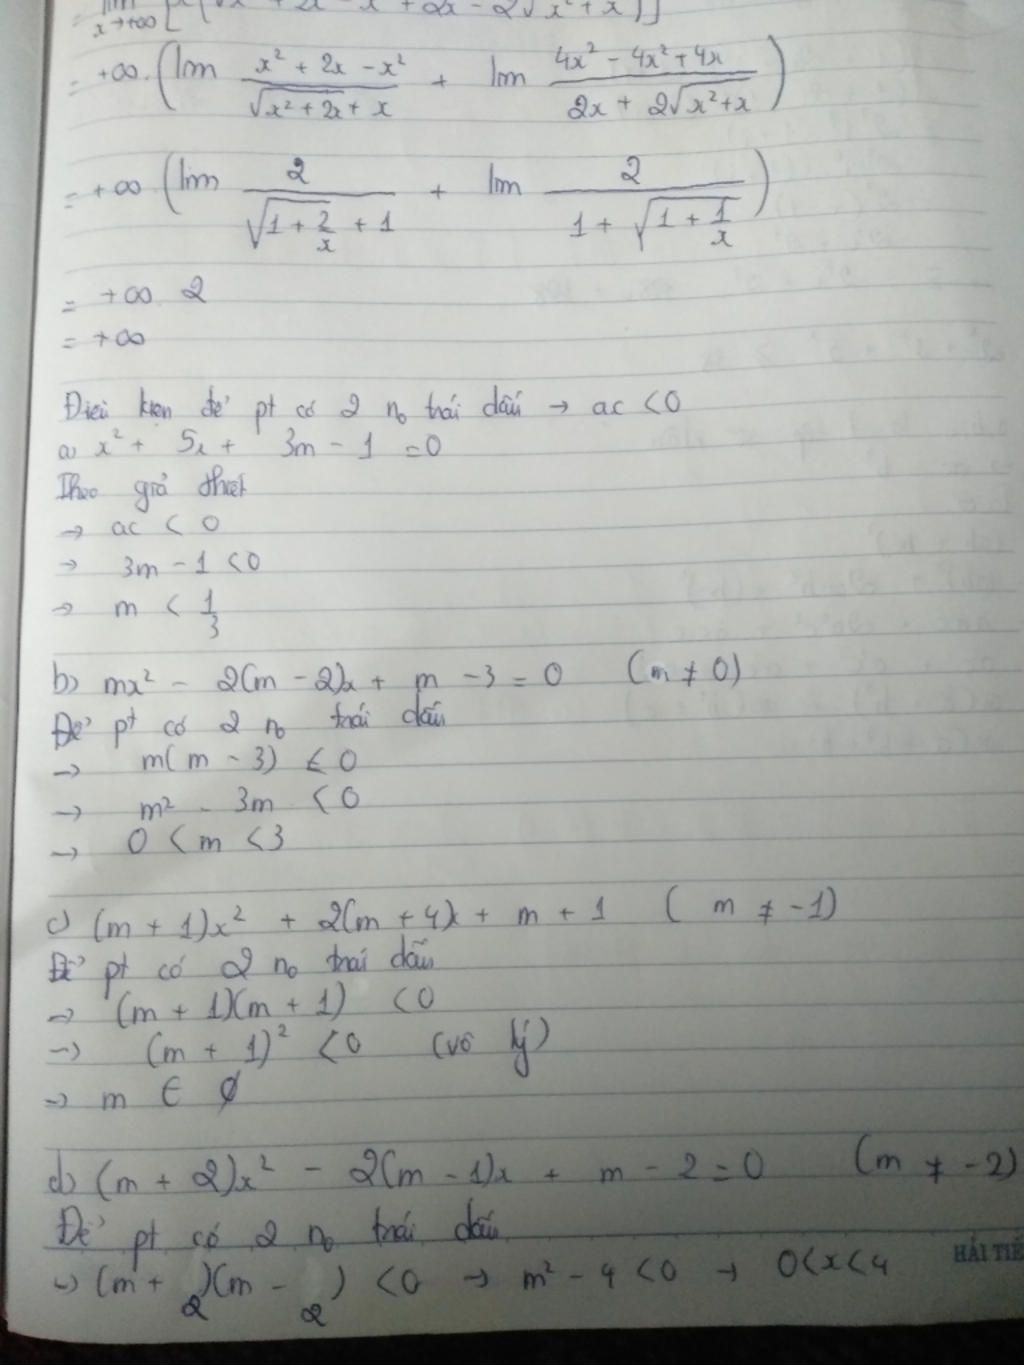 lim x→+∞ [x(√x² + 2x - x + 2x - 2√x²+x)]
= +∞.(lim (x² + 2x - x²)/(√x²+2x + x) + lim (4x² - 4x² + 4x)/(2x + 2√x²+x))
= +∞.(lim 2/(√1+2/x + 1) + lim 2/(1 + √1+1/x))
= +∞. 2
= +∞
Điều kiện để pt có 2 n₀ trái dấu → ac < 0
a) x² + 5x + 3m - 1 = 0
Theo giả thiết
→ ac < 0
→ 3m - 1 < 0
→ m < 1/3
b) mx² - 2(m - 2)x + m - 3 = 0 (m ≠ 0)
Để pt có 2 n₀ trái dấu
→ m(m - 3) < 0
→ m² - 3m < 0
→ 0 < m < 3
c) (m + 1)x² + 2(m + 4)x + m + 1 ( m ≠ -1)
Để pt có 2 n₀ trái dấu
→ (m + 1)(m + 1) < 0
→ (m + 1)² < 0 (vô lý)
→ m ∈ ∅
d) (m + 2)x² - 2(m - 1)x + m - 2 = 0 (m ≠ -2)
Để pt có 2 n₀ trái dấu
→ (m + 2)(m - 2) < 0 → m² - 4 < 0 → 0 < x < 4
HẢI TIẾ